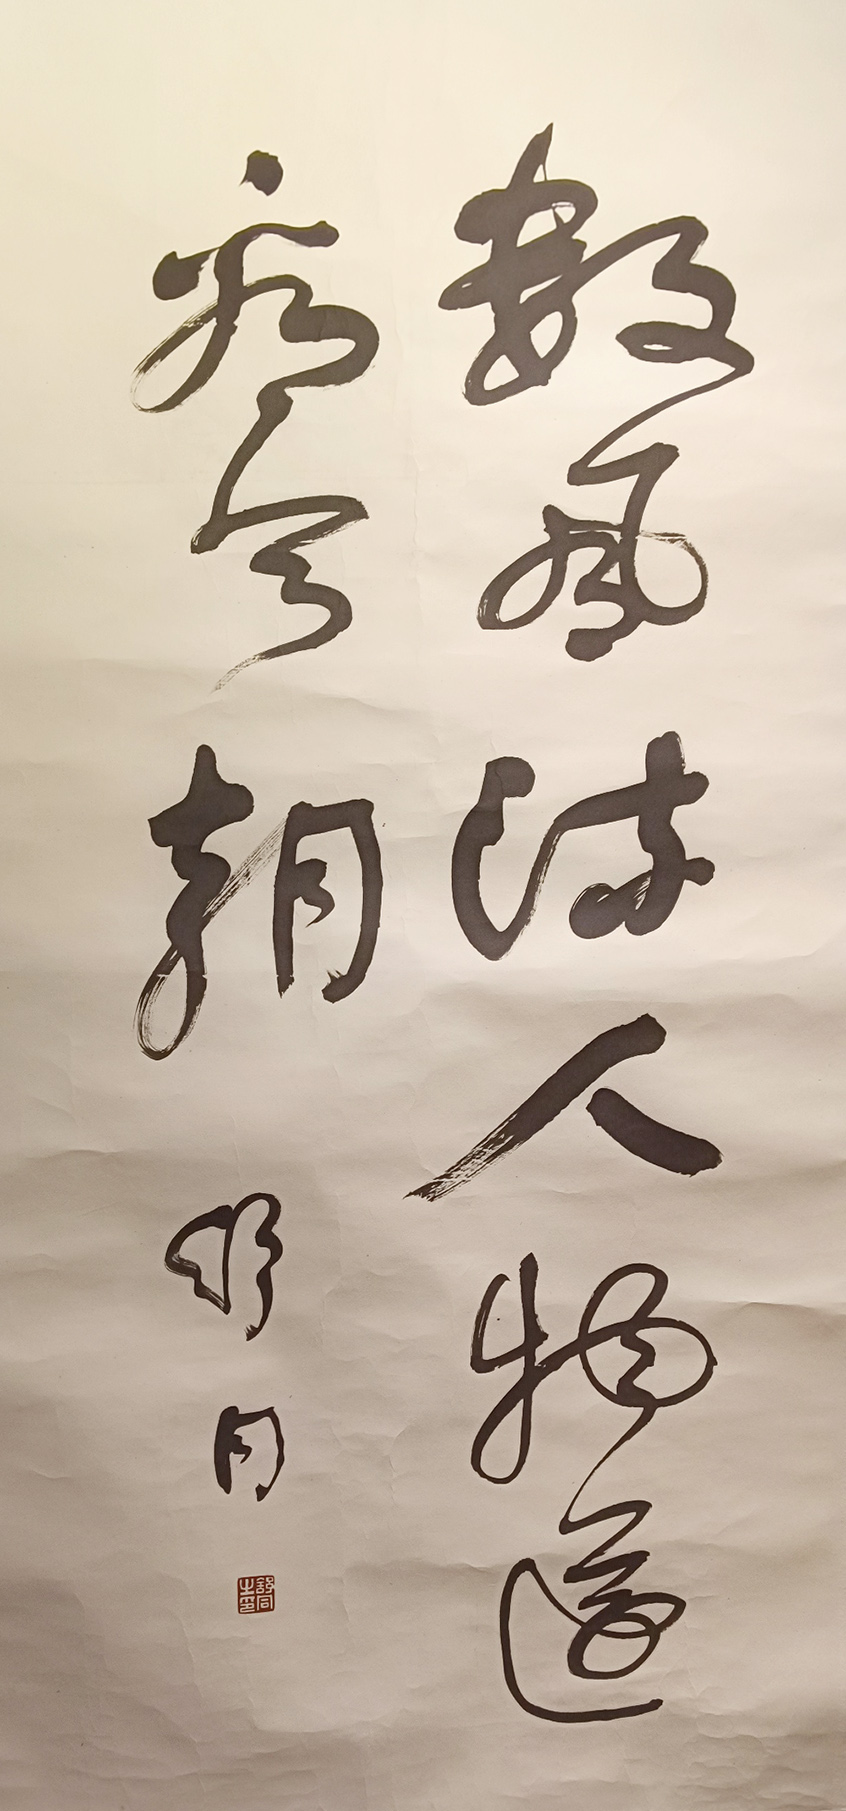 数风流人物还
看今朝
舒同
舒同之印